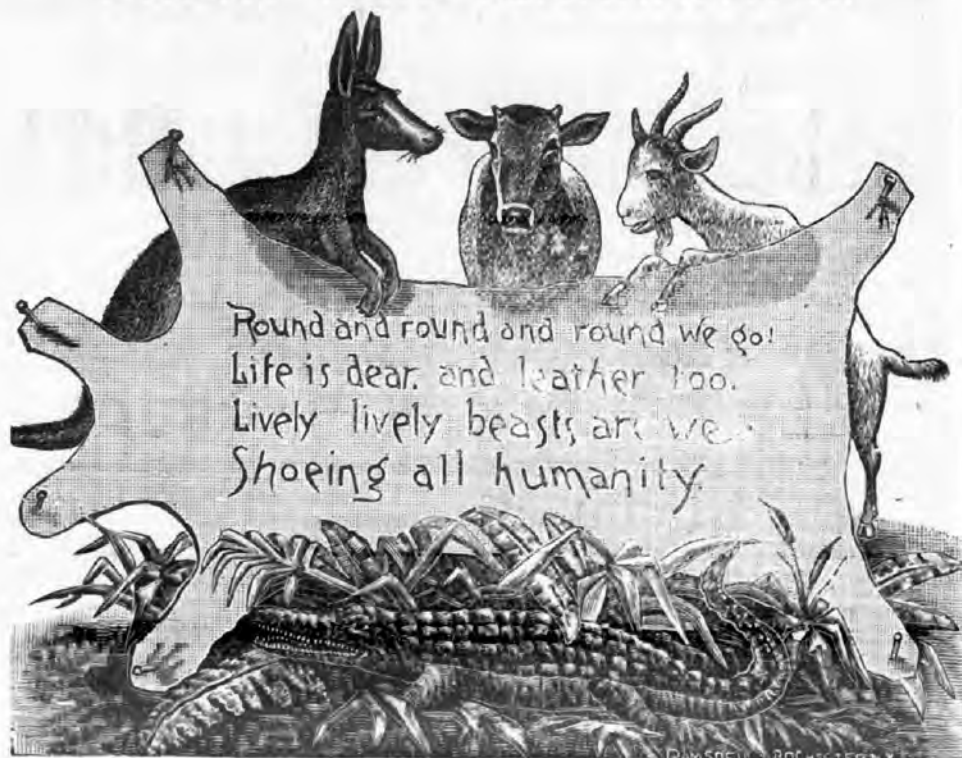 Round and round and round we go!
Life is dear. and leather too.
Lively lively beasts are we.
Shoeing all humanity.
ROCHESTER N.Y.